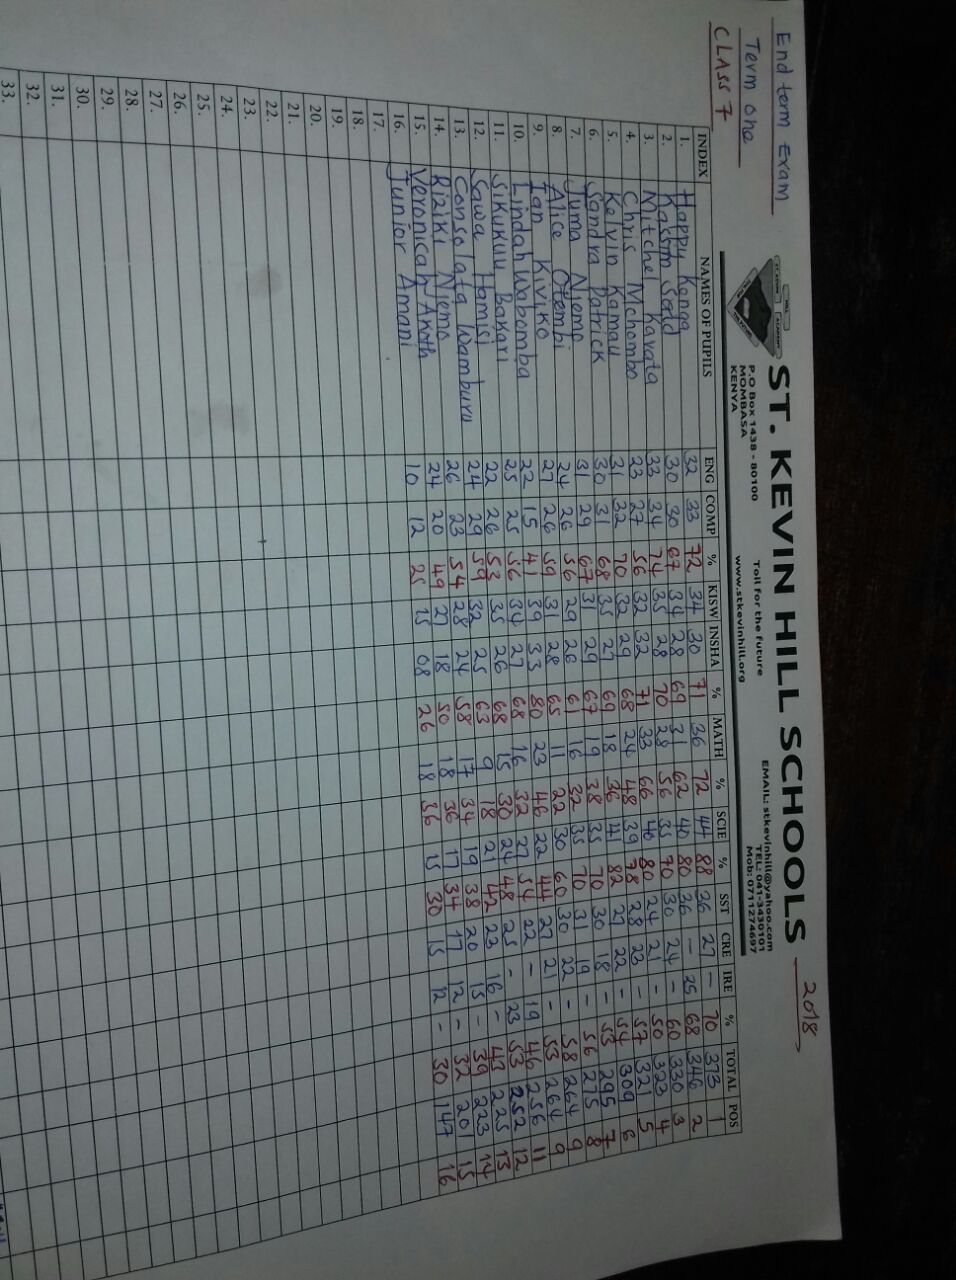 End term exam
Term one
CLASS 7
ST. KEVIN HILL SCHOOLS 2018
P.O Box 1438 - 80100
MOMBASA
KENYA
Toll for the future
www.stkevinhill.org
EMAIL: stkevinhill@yahoo.com
TEL: 041-3430101
Mob: 0711274697
INDEX NAMES OF PUPILS ENG COMP % KISW INSHA % MATH % SCIE % SST CRE IRE % TOTAL POS
1. Happy Kenga 32 33 72 34 30 71 36 72 44 88 36 27 - 70 373 1
2. Kassim Said 30 30 67 34 28 69 31 62 40 80 36 - 25 68 346 2
3. Mitchel Kavata 33 34 74 35 28 70 28 56 35 70 30 24 - 60 330 3
4. Chris Mchombo 23 27 56 32 32 71 33 66 40 80 24 21 - 50 323 4
5. Kelvin Kamau 31 32 70 32 29 68 24 48 39 78 28 23 - 57 321 5
6. Sandra Patrick 30 31 68 35 27 69 18 36 41 82 27 22 - 54 309 6
7. Juma Njema 31 29 67 31 29 67 19 38 35 70 30 18 - 53 295 7
8. Alice Otembi 24 26 56 29 26 61 16 32 35 70 31 19 - 56 275 8
9. Ian Kiviko 27 26 59 31 28 65 11 22 30 60 30 22 - 58 264 9
10. Lindah Wabomba 22 15 41 39 33 80 23 46 22 44 27 21 - 53 264 9
11. Sikukuu Bakari 25 25 56 34 27 68 16 32 27 54 22 - 19 46 256 11
12. Sawa Hamisi 22 26 53 35 26 68 15 30 24 48 25 - 23 53 252 12
13. Consolata Wamburu 24 29 59 32 25 63 9 18 21 42 23 16 - 43 225 13
14. Riziki Njema 26 23 54 28 24 58 17 34 19 38 20 15 - 39 223 14
15. Veronicah Akoth 24 20 49 27 18 50 18 36 17 34 17 12 - 32 201 15
16. Junior Amani 10 12 25 15 08 26 18 36 15 30 15 12 - 30 147 16
17.
18.
19.
20.
21.
22.
23.
24.
25.
26.
27.
28.
29.
30.
31.
32.
33.